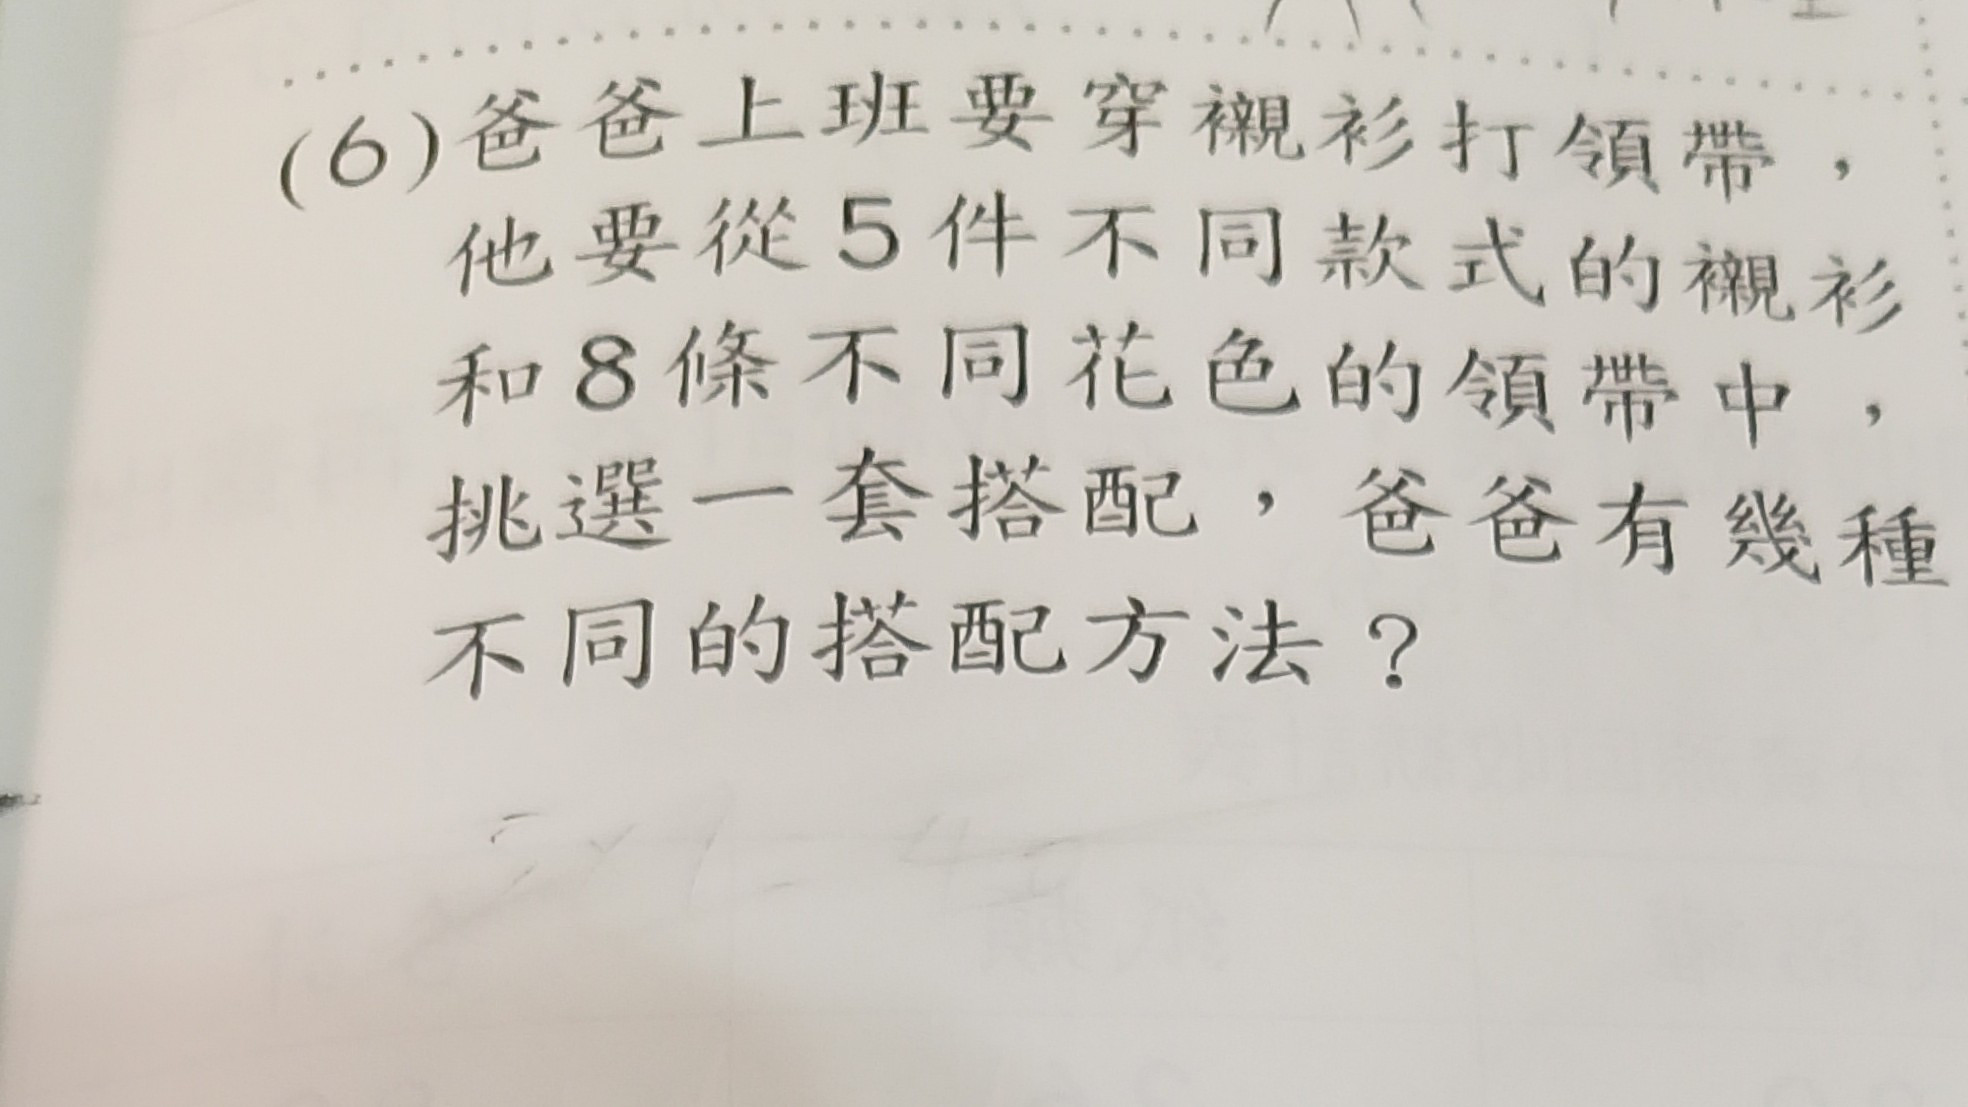 (6)爸爸上班要穿襯衫打領帶，
他要從5件不同款式的襯衫
和8條不同花色的領帶中，
挑選一套搭配，爸爸有幾種
不同的搭配方法？